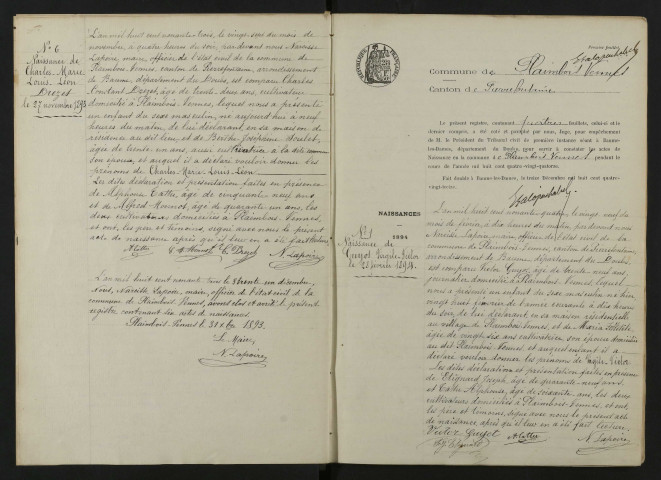 N° 6
Naissance de
Charles Marie
Louis Léon
Drezet
le 27 novembre 1893
L'an mil huit cent nonante trois, le vingt sept du mois de
novembre à quatre heures du soir, par devant nous Narcisse
Lapoire, maire, officier de l'état civil de la commune de
Plaimbois Vennes, canton de Pierrefontaine, arrondissement
de Baume, département du Doubs, est comparu Charles
Constant Drezet, âgé de trente deux ans, cultivateur
domicilié à Plaimbois-Vennes, lequel nous a présenté
un enfant du sexe masculin, né aujourd'hui à neuf
heures du matin, de lui déclarant en sa maison de
résidence au dit lieu et de Berthe Joséphine
âgée de trente un ans, aussi
son épouse, et auquel il a déclaré vouloir donner les
prénoms de Charles-Marie-Louis-Léon.
Les dites déclaration et présentation faites en présence
de Alphonse Cattet, âgé de cinquante neuf ans
et de Alfred Monnot, âgé de quarante un ans, les
deux cultivateurs domiciliés à Plaimbois-Vennes,
et ont, les père et témoins, signé avec nous le présent
acte de naissance après qu'il leur en a été fait lecture
A. Cattet C. Drezet N. Lapoire
L'an mil huit cent nonante trois le trente un décembre,
Nous, Narcisse Lapoire, maire, officier de l'état civil de la
commune de Plaimbois-Vennes, avons clos et arrêté le présent
registre contenant les actes de naissances.
Plaimbois-Vennes le 31 Xbre 1893.
Le Maire
N. Lapoire
COMMUNE de Plaimbois Vennes
CANTON de Pierrefontaine
Le présent registre, contenant feuillets, celui-ci et le
dernier compris, a été coté et paraphé par nous, Juge, pour empêchement
de M. le Président du Tribunal civil de première instance séant à Baume-
les-Dames, département du Doubs, pour servir à constater les actes de
Naissance en la commune de Plaimbois Vennes pendant le
cours de l'année mil huit cent quatre-vingt-quatorze.
Fait double à Baume-les-Dames, le treize Décembre mil huit cent quatre-
vingt-treize.
NAISSANCES
1894
N° 1
Naissance de
Guyot
le 28 février 1894.
L'an mil huit cent nonante quatre, le vingt neuf du
mois de à dix heures du matin, par devant nous
Narcisse Lapoire, maire, officier de l'état civil de la
commune de Plaimbois-Vennes, canton de Pierrefontaine
arrondissement de Baume, département du Doubs,
est comparu Victor Guyot, âgé de trente ans,
journalier domicilié à Plaimbois-Vennes, lequel
nous a présenté un enfant du sexe masculin né hier
vingt huit de l'année courante à dix heures
du soir, de lui déclarant, en sa maison résidentielle
au village de Plaimbois-Vennes, et de Maria
âgée de vingt six ans cultivatrice son épouse domiciliée
au dit Plaimbois-Vennes, et auquel enfant il a
déclaré vouloir donner les prénoms de
Les dites déclaration et présentation faites en présence
de Joseph, âgé de quarante neuf ans
et Cattet Alphonse, âgé de soixante ans, les deux
cultivateurs domiciliés à Plaimbois-Vennes, et ont,
les père et témoins, signé avec nous le présent acte
de naissance après qu'il leur en a été fait lecture.
Victor Guyot A. Cattet N. Lapoire